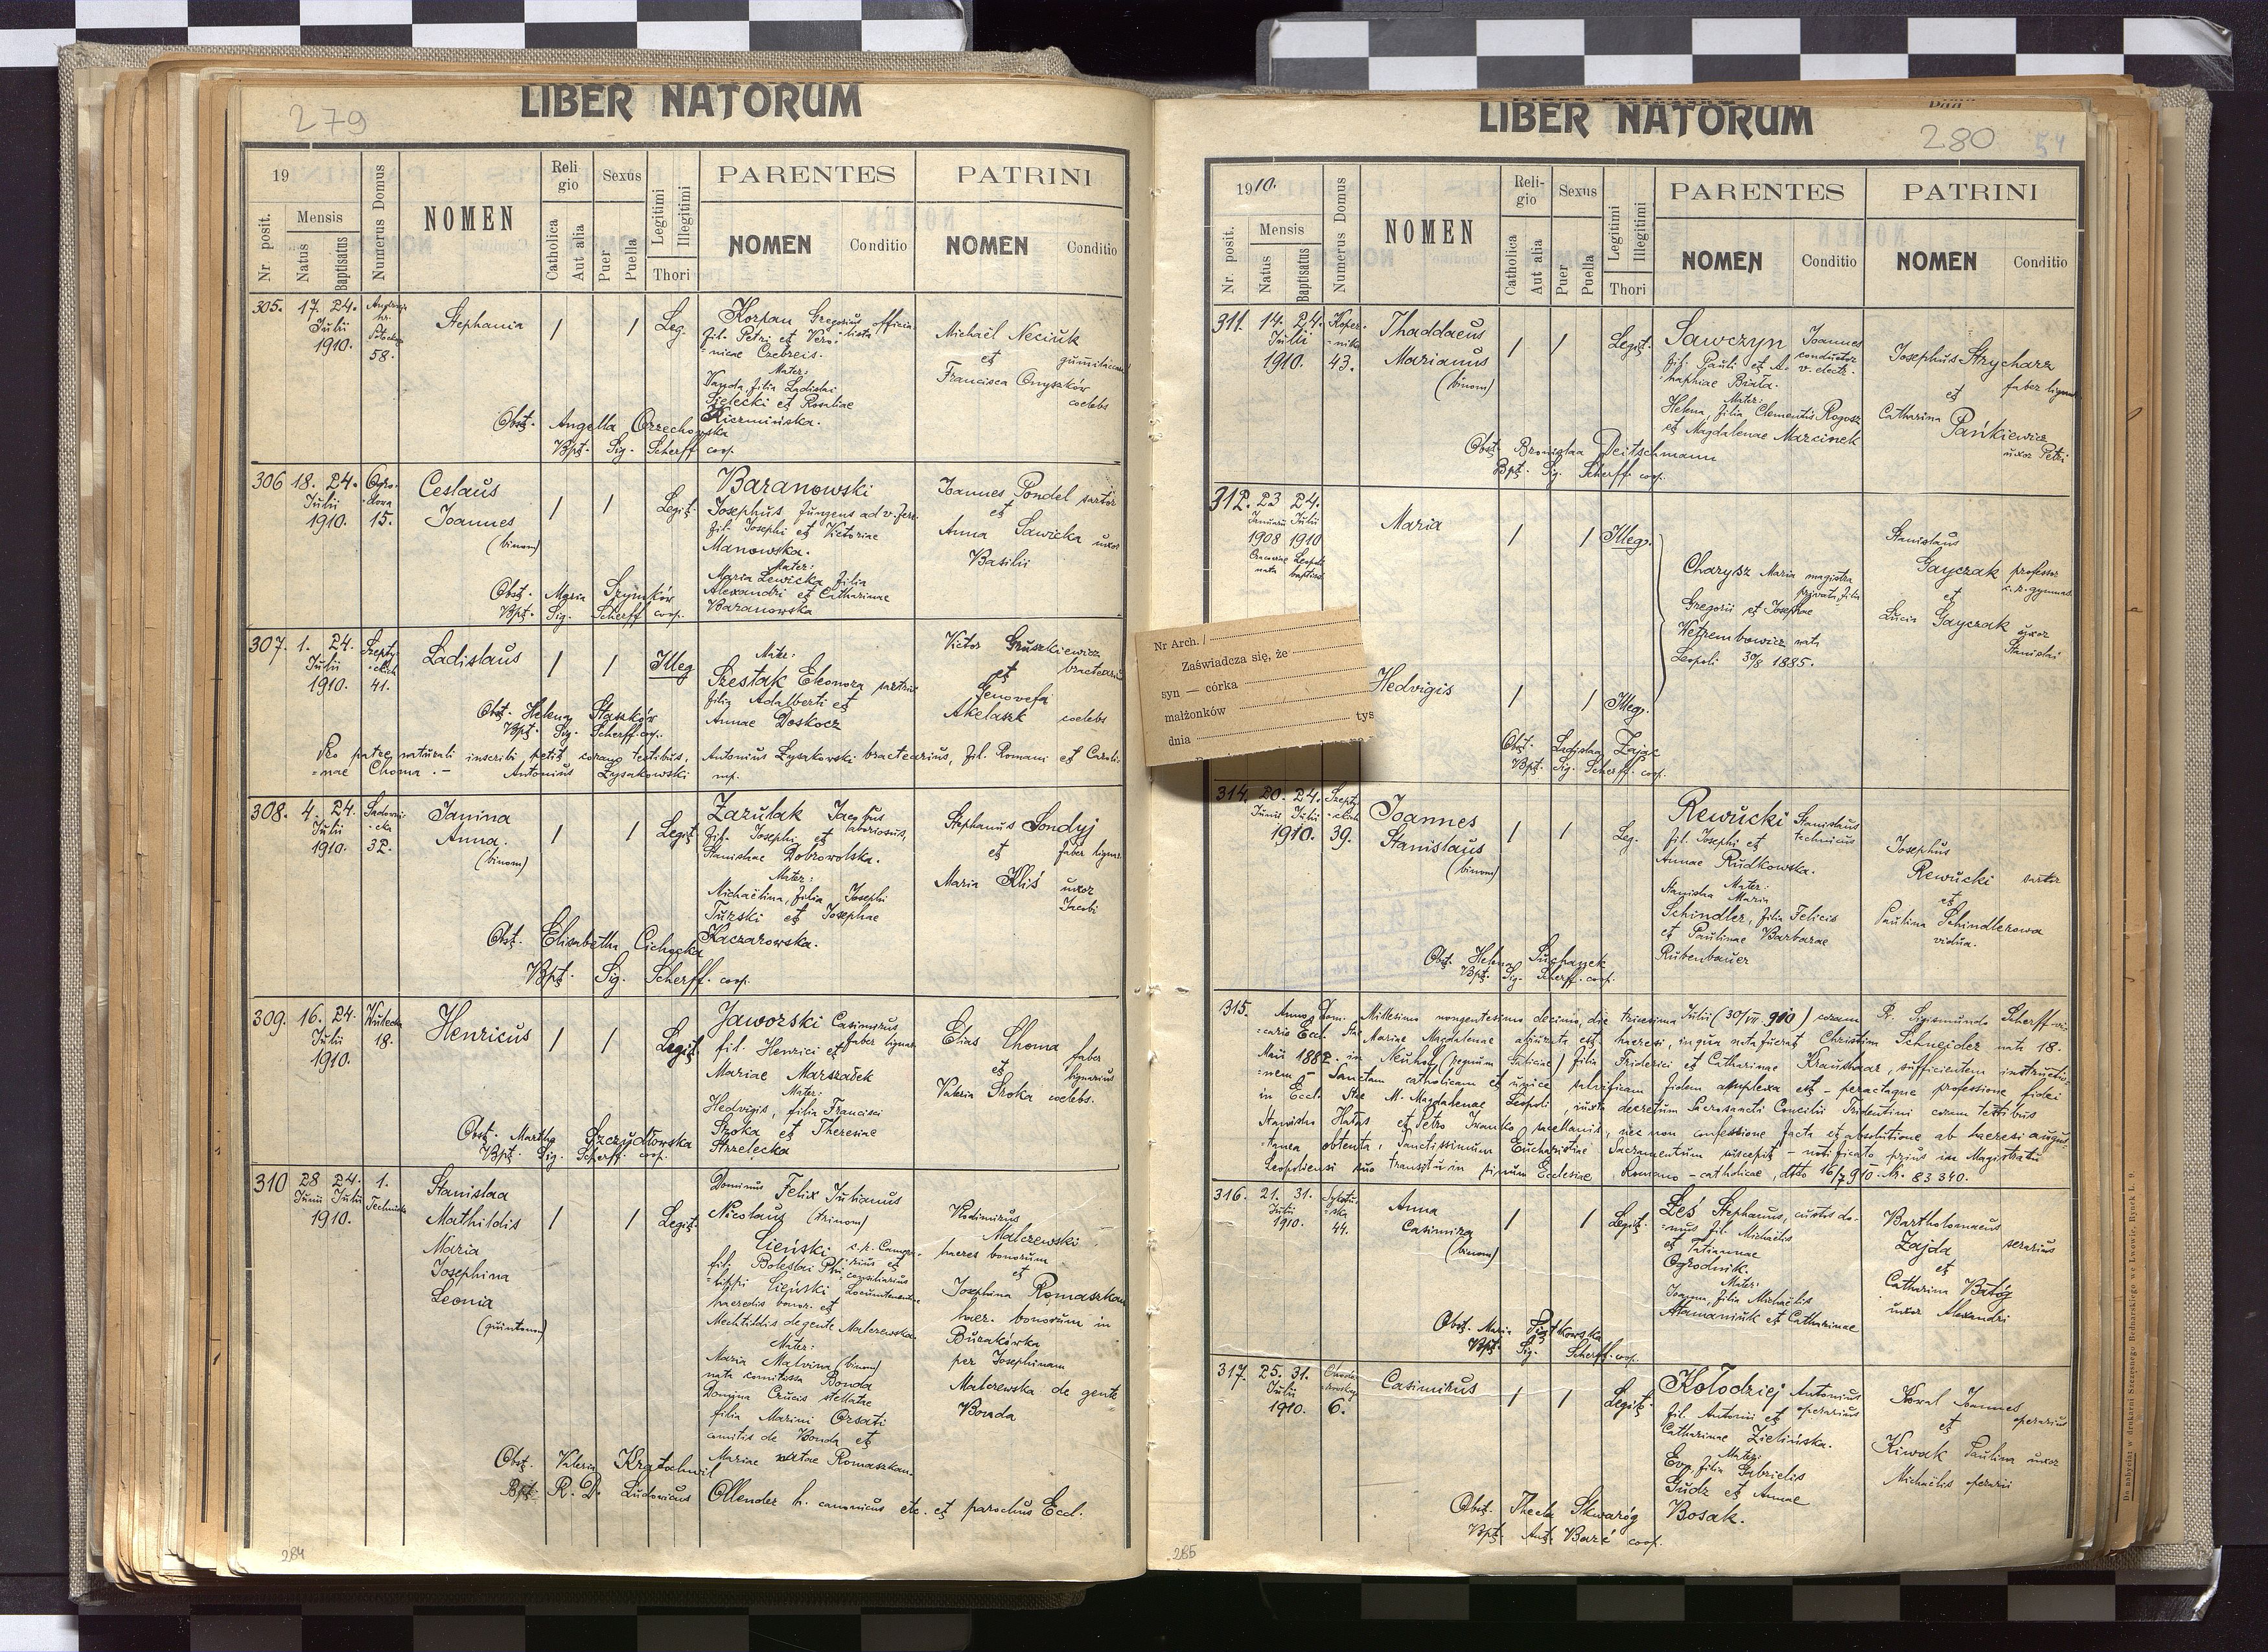 279
LIBER NATORUM
19
Nr. posit.
Mensis
Natus
Baptisatus
Numerus Domus
NOMEN
Reli-
gio
Catholica
Aut alia
Sexus
Puer
Puella
Legitimi
Illegitimi
Thori
PARENTES
NOMEN
Conditio
PATRINI
NOMEN
Conditio
305. 17. 24.
Julii
1910.
58.
Stephania
/ /
Leg.
Korpan Gregorius officia-
fil. Petri et Vero-
-nicae
Mater:
Vanda, filia Ladislai
Sielecki et Rosaliae
Obst. Angella Orzechowska
Bpt. Sig. Scherff coop.
Michaël Neciuk
et
Francisca Onyszków
coelebs
306 18. 24.
Julii
1910.
Ogro-
-dowa
15.
Ceslaus
Joannes
(binom)
/ /
Legit.
Baranowski
Josephus fungens ad v. ferr.
fil. Josephi et Victoriae
Manowska.
Mater:
Maria Lewicka filia
Alexandri et Catharinae
Baranowska
Obst. Maria Szymków
Bpt. Sig. Scherff coop.
Joannes Pondel sartor
et
Anna Sawicka uxor
Basilii
307. 1. 24.
Julii
1910.
Szepty-
-ckich
41.
Ladislaus
/ /
Illeg
Mater:
Szestak Eleonora sartrix
filia Adalberti et
Annae Doskocz
Victor Gruszkiewicz
et bractearius
Genovefa
Akelaszk coelebs
Obst. Helena Staszków
Bpt. Sig. Scherff coop.
Pro patre naturali inscribi petit coram testibus, Antonius Łysakowski bractearius, fil. Romani et Caroli-
-nae Choma.- Antonius Łysakowski mp.
308. 4. 24.
Julii
1910.
Sadowni-
-cka
32.
Janina
Anna.
(binom)
/ /
Legit.
Zazulak Jacobus
laboriosus,
fil. Josephi et
Stanislae Dobrowolska.
Mater:
Michaëlina, filia Josephi
Turski et Josephae
Kaczarowska.
Obst. Elisabetha Cichocka
Bpt. Sig. Scherff. coop.
Stephanus Sondyj
et faber lignar.
Maria Kliś uxor
Jacobi
309. 16. 24.
Julii
1910.
Wulecka
18.
Henricus
/ /
Legit.
Jaworski Casimirus
faber lignar.
fil. Henrici et
Mariae Marszałek
Mater:
Hedvigis, filia Francisci
Szoka et Theresiae
Strzelecka
Obst. Martha Szczydłowska
Bpt. Sig. Scherff coop.
Elias Choma faber
et lignarius
Valeria Sroka coelebs.
310 28 24.
Junii Julii
1910.
1.
Technicka
Stanislaa
Mathildis
Maria
Josephina
Leonia
(quintnom)
/ /
Legit.
Dominus Felix Julianus
Nicolaus (trinom)
Cieński
fil. Boleslai Phi-
-lippi Cieński
haeredis bonor. et
Mechtildis de gente Malczewska.
Mater:
Maria Malvina (binom)
nata comitissa Bonda
Domina Crucis stellatae
filia Marini Orsati
comitis de Bonda et
Mariae natae Romaszkan.
Vlodimirus
Malczewski
haeres bonorum
et
Josephina Romaszkan
haer. bonorum in
Burakówka
per Josephinam
Malczewska de gente
Bonda
Obst. Valeria Kratochwil
Bpt. R. D. Ludovicus Ollender h. canonicus etc. et parochus Eccl.
284
LIBER NATORUM
280
54
1910.
Nr. posit.
Mensis
Natus
Baptisatus
Numerus Domus
NOMEN
Reli-
gio
Catholica
Aut alia
Sexus
Puer
Puella
Legitimi
Illegitimi
Thori
PARENTES
NOMEN
Conditio
PATRINI
NOMEN
Conditio
311. 14. 24.
Julii
1910.
Koper-
-nika
43.
Thaddaeus
Marianus
(binom)
/ /
Legit.
Sawczyn Joannes
conductor
fil. Pauli et A- v. electr.
-naphiae Biała.
Mater:
Helena, filia Clementis Rogosz
et Magdalenae Marcinek
Obst. Bronislaa Deitschmann
Bpt. Sig. Scherff. coop.
Josephus Strycharz
et faber lignar.
Catharina
Pańkiewicz
uxor Petri
312. 23 24.
Januarii Julii
1908 1910
Cracoviae Leopoli
nata baptisa
Maria
/ /
Illeg.
Charysz Maria magistra
privata, filia
Gregorii et Josephae
Wetzembowicz nata
Leopoli 30/8 1885.
Stanislaus
Gayczak professor
c. r. gymnas.
et
Lucia Gayczak uxor
Stanislai
Nr Arch. /
Zaświadcza się, że
syn — córka
małżonków
dnia tys
Hedvigis
/ /
Illeg.
Obst. Ladislaa Zając
Bpt. Sig. Scherff. coop.
314. 20. 24.
Junii Julii
1910.
Szepty-
-ckich
39.
Joannes
Stanislaus
(binom)
/ /
Leg.
Rewucki Stanislaus
technicus
fil. Josephi et
Annae Rudkowska.
Mater:
Stanislaa Maria
Schindler, filia Felicis
et Paulinae Barbarae
Rubenbauer
Obst. Helena Suchanek
Bpt. Sig. Scherff. coop.
Josephus
Rewucki sartor
et
Paulina Schindlerowa
vidua.
315. Anno Dom. Millesimo nongentesimo decimo, die tricesima Julii (30/VII 910) coram R. Sigismundo Scherff vi-
-cario Eccl. Stae Mariae Magdalenae abiurata est haeresi, in qua nata fuerat Christina Schneider nata 18.
Maii 1882. in Neuhof (regnum Galiciae) filia Friderici et Catharinae Kraushaar, sufficientem instructio-
-nem - Sanctam catholicam et unice salvificam fidem amplexa est - peractaque professione fidei
in Eccl. Stae M. Magdalenae Leopoli, iuxta decretum Sacrosancti Concilii Tridentini coram testibus
Stanislao Hałas et Petro Iwanko sacellanis, nec non confessione facta et absolutione ab haeresi
obtenta, Sanctissimum Eucharistiae Sacramentum suscepit - notificato prius in Magistratu
Leopoliensi suo transitu in sinum Ecclesiae Romano-catholicae, dtto 16/7 910. Nr. 83340.
316. 21. 31.
Julii
1910.
44.
Anna
Casimira
(binom)
/ /
Legit.
Łeś Stephanus, custos do-
-mus fil. Michaëlis
et Tatiannae
Ogrodnik.
Mater:
Joanna, filia Michaëlis
Atamaniuk et Catharinae
Obst. Maria
Bpt. Sig. Scherff. coop.
Bartholomaeus
Zajda serarius
et
Catharina Batóg
uxor Alexandri
317. 25. 31.
Julii
1910.
6.
Casimirus
/ /
Legit.
Kołodziej Antonius
operarius
fil. Antonii et
Catharinae Zielińska.
Mater:
Eva, filia Gabrielis
Gudz et Annae
Bosak.
Obst. Thecla Skwaróg
Bpt. Ant. coop.
Kowal Joannes
et operarius
Kiwak Paulina uxor
Michaëlis operarii
285
Do nabycia w drukarni Szczęsnego Bednarskiego we Lwowie, Rynek L. 9.